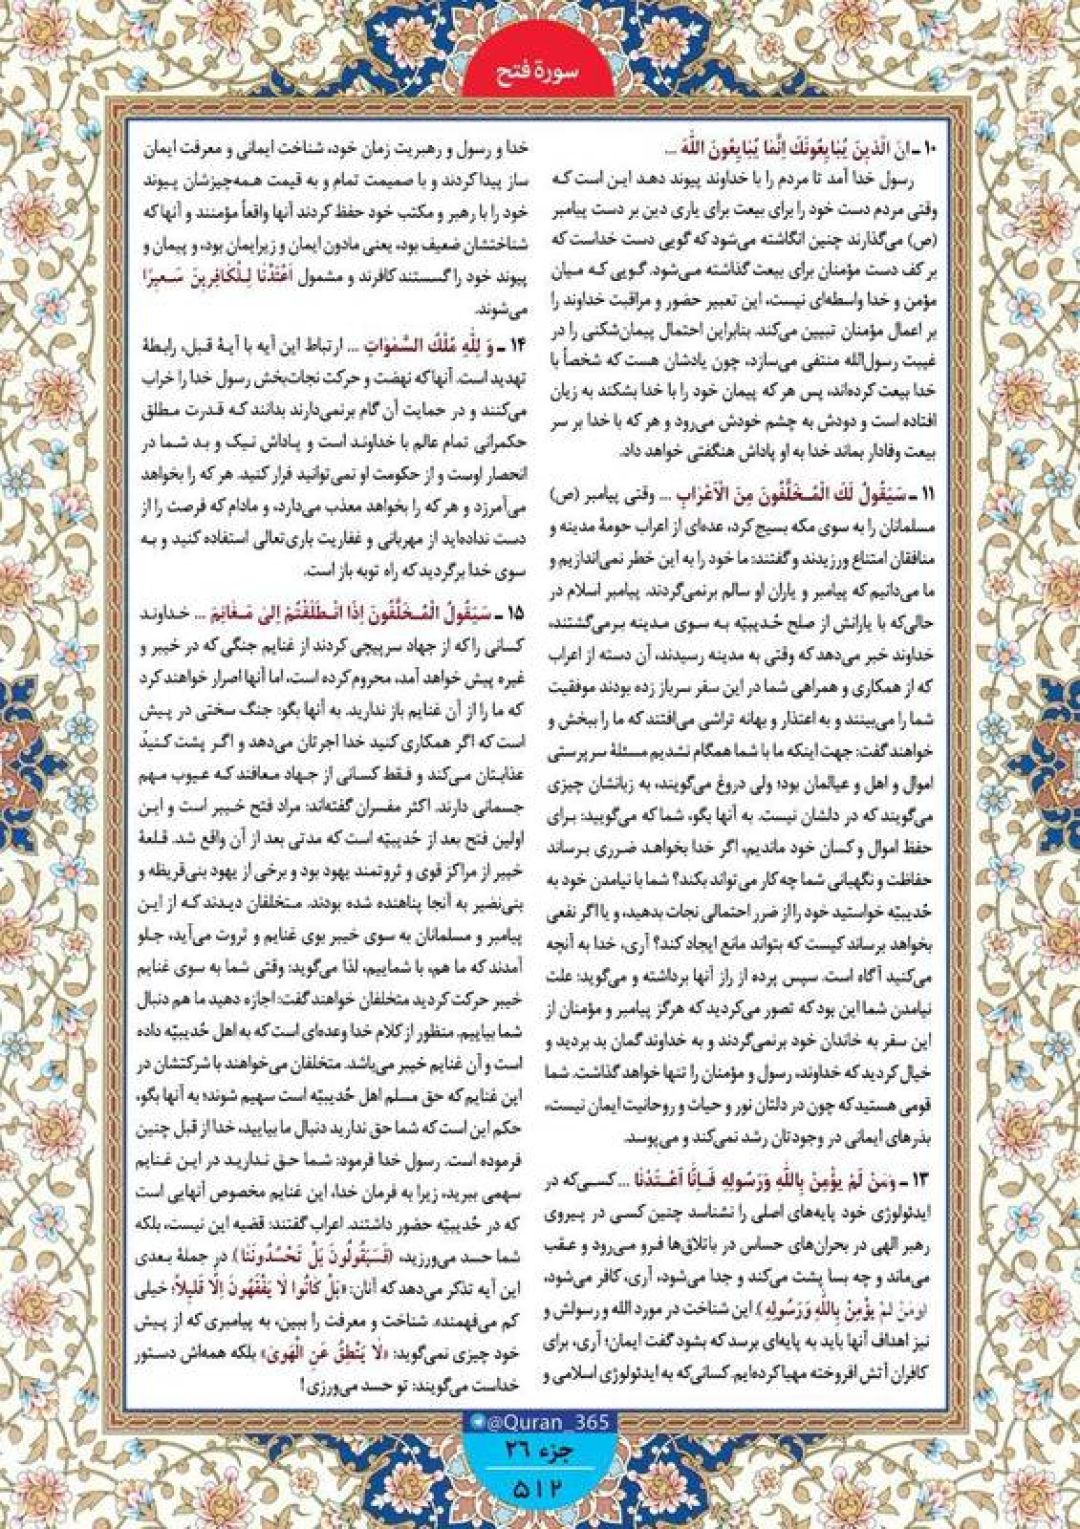 سورة فتح
۱۰ ـ اِنَّ الَّذينَ يُبَايِعُونَكَ اِنَّمَا يُبَايِعُونَ اللّٰهَ ...
رسول خدا آمد تا مردم را با خداوند پیوند دهد. این است که
وقتی مردم دست خود را برای بیعت برای یاری دین بر دست پیامبر
(ص) می‌گذارند چنین انگاشته می‌شود که گویی دست خداست که
بر کف دست مؤمنان برای بیعت گذاشته می‌شود. گویی که میان
مؤمن و خدا واسطه‌ای نیست، این تعبیر حضور و مراقبت خداوند را
بر اعمال مؤمنان تبیین می‌کند. بنابراین احتمال پیمان‌شکنی را در
غیبت رسول‌الله منتفی می‌سازد، چون یادشان هست که شخصاً با
خدا بیعت کرده‌اند، پس هر که پیمان خود را با خدا بشکند به زیان
افتاده است و دودش به چشم خودش می‌رود و هر که با خدا بر سر
بیعت وفادار بماند خدا به او پاداش هنگفتی خواهد داد.
۱۱ ـ سَيَقُولُ لَكَ الْمُخَلَّفُونَ مِنَ الْاَعْرَابِ ... وقتی پیامبر (ص)
مسلمانان را به سوی مکه بسیج کرد، عده‌ای از اعراب حومهٔ مدینه و
منافقان امتناع ورزیدند و گفتند: ما خود را به این خطر نمی‌اندازیم و
ما می‌دانیم که پیامبر و یاران او سالم برنمی‌گردند. پیامبر اسلام در
حالی‌که با یارانش از صلح حُدیبیّه به سوی مدینه برمی‌گشتند،
خداوند خبر می‌دهد که وقتی به مدینه رسیدند، آن دسته از اعراب
که از همکاری و همراهی شما در این سفر سرباز زده بودند موفقیت
شما را می‌بینند و به اعتذار و بهانه تراشی می‌افتند که ما را ببخش و
خواهند گفت: جهت اینکه ما با شما همگام نشدیم مسئلهٔ سرپرستی
اموال و اهل و عیالمان بود؛ ولی دروغ می‌گویند، به زبانشان چیزی
می‌گویند که در دلشان نیست. به آنها بگو، شما که می‌گویید: برای
حفظ اموال و کسان خود ماندیم، اگر خدا بخواهد ضرری برساند
حفاظت و نگهبانی شما چه کار می‌تواند بکند؟ شما با نیامدن خود به
حُدیبیّه خواستید خود را از ضرر احتمالی نجات بدهید، و یا اگر نفعی
بخواهد برساند کیست که بتواند مانع ایجاد کند؟ آری، خدا به آنچه
می‌کنید آگاه است. سپس پرده از راز آنها برداشته و می‌گوید: علت
نیامدن شما این بود که تصور می‌کردید که هرگز پیامبر و مؤمنان از
این سفر به خاندان خود برنمی‌گردند و به خداوند گمان بد بردید و
خیال کردید که خداوند، رسول و مؤمنان را تنها خواهد گذاشت. شما
قومی هستید که چون در دلتان نور و حیات و روحانیت ایمان نیست،
بذرهای ایمانی در وجودتان رشد نمی‌کند و می‌پوسد.
۱۳ ـ وَمَنْ لَمْ يُؤْمِنْ بِاللّٰهِ وَرَسُولِهِ فَاِنَّا اَعْتَدْنَا ... کسی‌که در
ایدئولوژی خود پایه‌های اصلی را نشناسد چنین کسی در پیروی
رهبر الهی در بحران‌های حساس در باتلاق‌ها فرو می‌رود و عقب
می‌ماند و چه بسا پشت می‌کند و جدا می‌شود، آری، کافر می‌شود،
(وَمَنْ لَمْ يُؤْمِنْ بِاللّٰهِ وَرَسُولِهِ). این شناخت در مورد الله و رسولش و
نیز اهداف آنها باید به پایه‌ای برسد که بشود گفت ایمان؛ آری، برای
کافران آتش افروخته مهیا کرده‌ایم. کسانی‌که به ایدئولوژی اسلامی و
خدا و رسول و رهبریت زمان خود، شناخت ایمانی و معرفت ایمان
ساز پیدا کردند و با صمیمت تمام و به قیمت همه‌چیزشان پیوند
خود را با رهبر و مکتب خود حفظ کردند آنها واقعاً مؤمنند و آنها که
شناختشان ضعیف بود، یعنی مادون ایمان و زیرایمان بود، و پیمان و
پیوند خود را گسستند کافرند و مشمول اَعْتَدْنَا لِلْكَافِرِينَ سَعِيرًا
می‌شوند.
۱۴ ـ وَ لِلّٰهِ مُلْكُ السَّمٰوَاتِ ... ارتباط این آیه با آیهٔ قبل، رابطهٔ
تهدید است. آنها که نهضت و حرکت نجات‌بخش رسول خدا را خراب
می‌کنند و در حمایت آن گام برنمی‌دارند بدانند که قدرت مطلق
حکمرانی تمام عالم با خداوند است و پاداش نیک و بد شما در
انحصار اوست و از حکومت او نمی‌توانید فرار کنید. هر که را بخواهد
می‌آمرزد و هر که را بخواهد معذب می‌دارد، و مادام که فرصت را از
دست نداده‌اید از مهربانی و غفاریت باری‌تعالی استفاده کنید و به
سوی خدا برگردید که راه توبه باز است.
۱۵ ـ سَيَقُولُ الْمُخَلَّفُونَ اِذَا انْطَلَقْتُمْ اِلىٰ مَغَانِمَ ... خداوند
کسانی را که از جهاد سرپیچی کردند از غنایم جنگی که در خیبر و
غیره پیش خواهد آمد، محروم کرده است، اما آنها اصرار خواهند کرد
که ما را از آن غنایم باز ندارید. به آنها بگو: جنگ سختی در پیش
است که اگر همکاری کنید خدا اجرتان می‌دهد و اگر پشت کنید
عذابتان می‌کند و فقط کسانی از جهاد معافند که عیوب مهم
جسمانی دارند. اکثر مفسران گفته‌اند: مراد فتح خیبر است و این
اولین فتح بعد از حُدیبیّه است که مدتی بعد از آن واقع شد. قلعهٔ
خیبر از مراکز قوی و ثروتمند یهود بود و برخی از یهود بنی‌قریظه و
بنی‌نضیر به آنجا پناهنده شده بودند. متخلفان دیدند که از این
پیامبر و مسلمانان به سوی خیبر بوی غنایم و ثروت می‌آید، جلو
آمدند که ما هم، با شماییم، لذا می‌گوید: وقتی شما به سوی غنایم
خیبر حرکت کردید متخلفان خواهند گفت: اجازه دهید ما هم دنبال
شما بیاییم. منظور از کلام خدا وعده‌ای است که به اهل حُدیبیّه داده
است و آن غنایم خیبر می‌باشد. متخلفان می‌خواهند با شرکتشان در
این غنایم که حق مسلم اهل حُدیبیّه است سهیم شوند؛ به آنها بگو،
حکم این است که شما حق ندارید دنبال ما بیایید، خدا از قبل چنین
فرموده است. رسول خدا فرمود: شما حق ندارید در این غنایم
سهمی ببرید، زیرا به فرمان خدا، این غنایم مخصوص آنهایی است
که در حُدیبیّه حضور داشتند. اعراب گفتند: قضیه این نیست، بلکه
شما حسد می‌ورزید، (فَسَيَقُولُونَ بَلْ تَحْسُدُونَنَا) در جملهٔ بعدی
این آیه تذکر می‌دهد که آنان: «بَلْ كَانُوا لَا يَفْقَهُونَ اِلَّا قَلِيلاً؛ خیلی
کم می‌فهمند». شناخت و معرفت را ببین، به پیامبری که از پیش
خود چیزی نمی‌گوید: «لَا يَنْطِقُ عَنِ الْهَوىٰ» بلکه همه‌اش دستور
خداست می‌گویند: تو حسد می‌ورزی!
@Quran_365
جزء ۲۶
۵۱۲